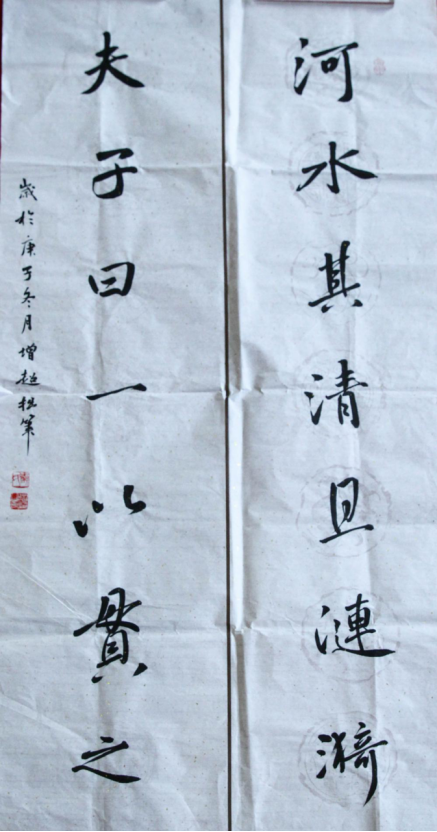 河水其清且漣漪
夫子曰一以貫之
歲於庚子冬月增超拙筆